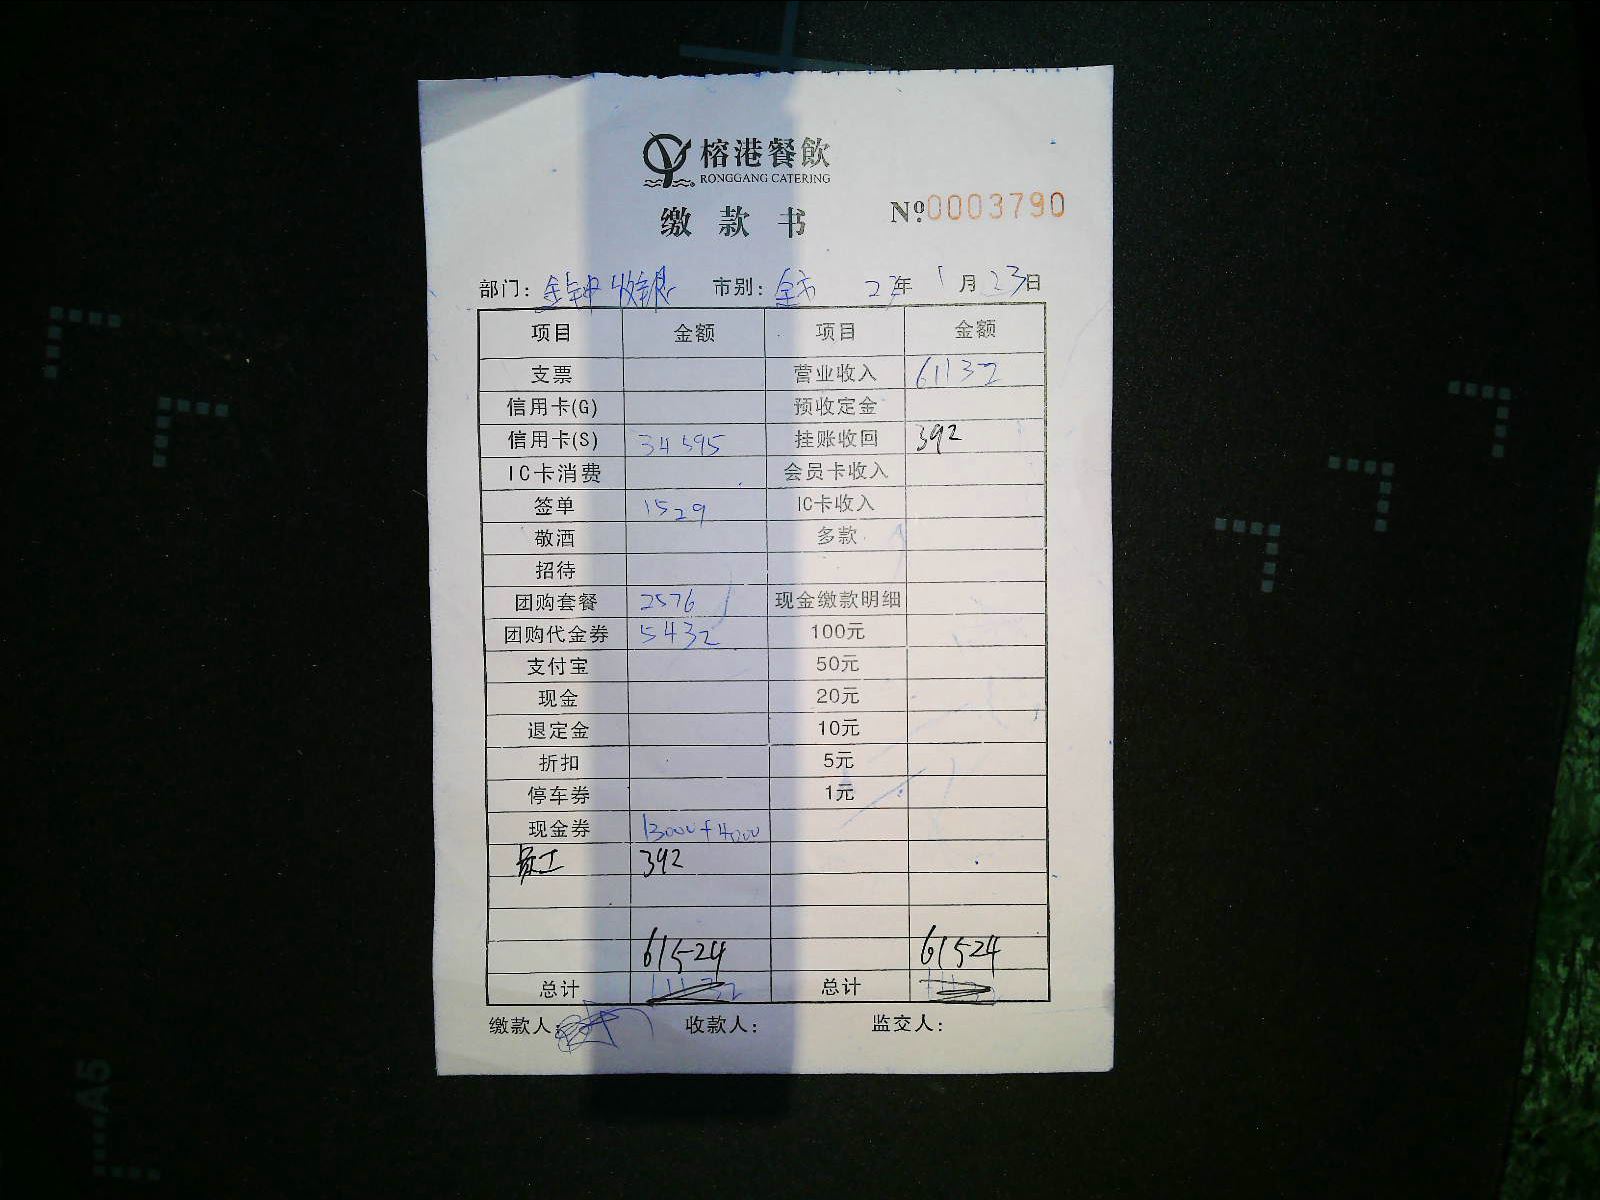 榕港餐飲
RONGGANG CATERING
缴款书 №0003790
部门: 金钟收银 市别: 全市 23年 1月 23日
项目 金额 项目 金额
支票 营业收入 61132
信用卡(G) 预收定金
信用卡(S) 34595 挂账收回 392
IC卡消费 会员卡收入
签单 1529 IC卡收入
敬酒 多款
招待
团购套餐 2576 现金缴款明细
团购代金券 5432 100元
支付宝 50元
现金 20元
退定金 10元
折扣 5元
停车券 1元
现金券 13000+4000
员工 392
61524 61524
总计 总计
缴款人: 收款人: 监交人:
A5